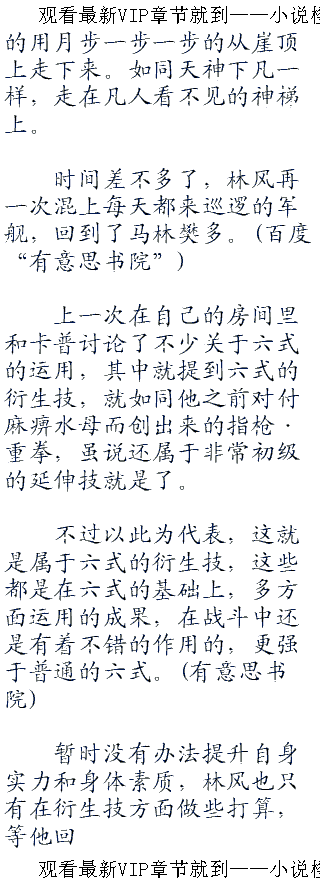 观看最新VIP章节就到——小说检
的用月步一步一步的从崖顶
上走下来。如同天神下凡一
样，走在凡人看不见的神梯
上。
时间差不多了，林风再
一次混上每天都来巡逻的军
舰，回到了马林樊多。(百度
“有意思书院”)
上一次在自己的房间里
和卡普讨论了不少关于六式
的运用，其中就提到六式的
衍生技，就如同他之前对付
麻痹水母而创出来的指枪·
重拳，虽说还属于非常初级
的延伸技就是了。
不过以此为代表，这就
是属于六式的衍生技，这些
都是在六式的基础上，多方
面运用的成果，在战斗中还
是有着不错的作用的，更强
于普通的六式。(有意思书
院)
暂时没有办法提升自身
实力和身体素质，林风也只
有在衍生技方面做些打算，
等他回
观看最新VIP章节就到——小说检